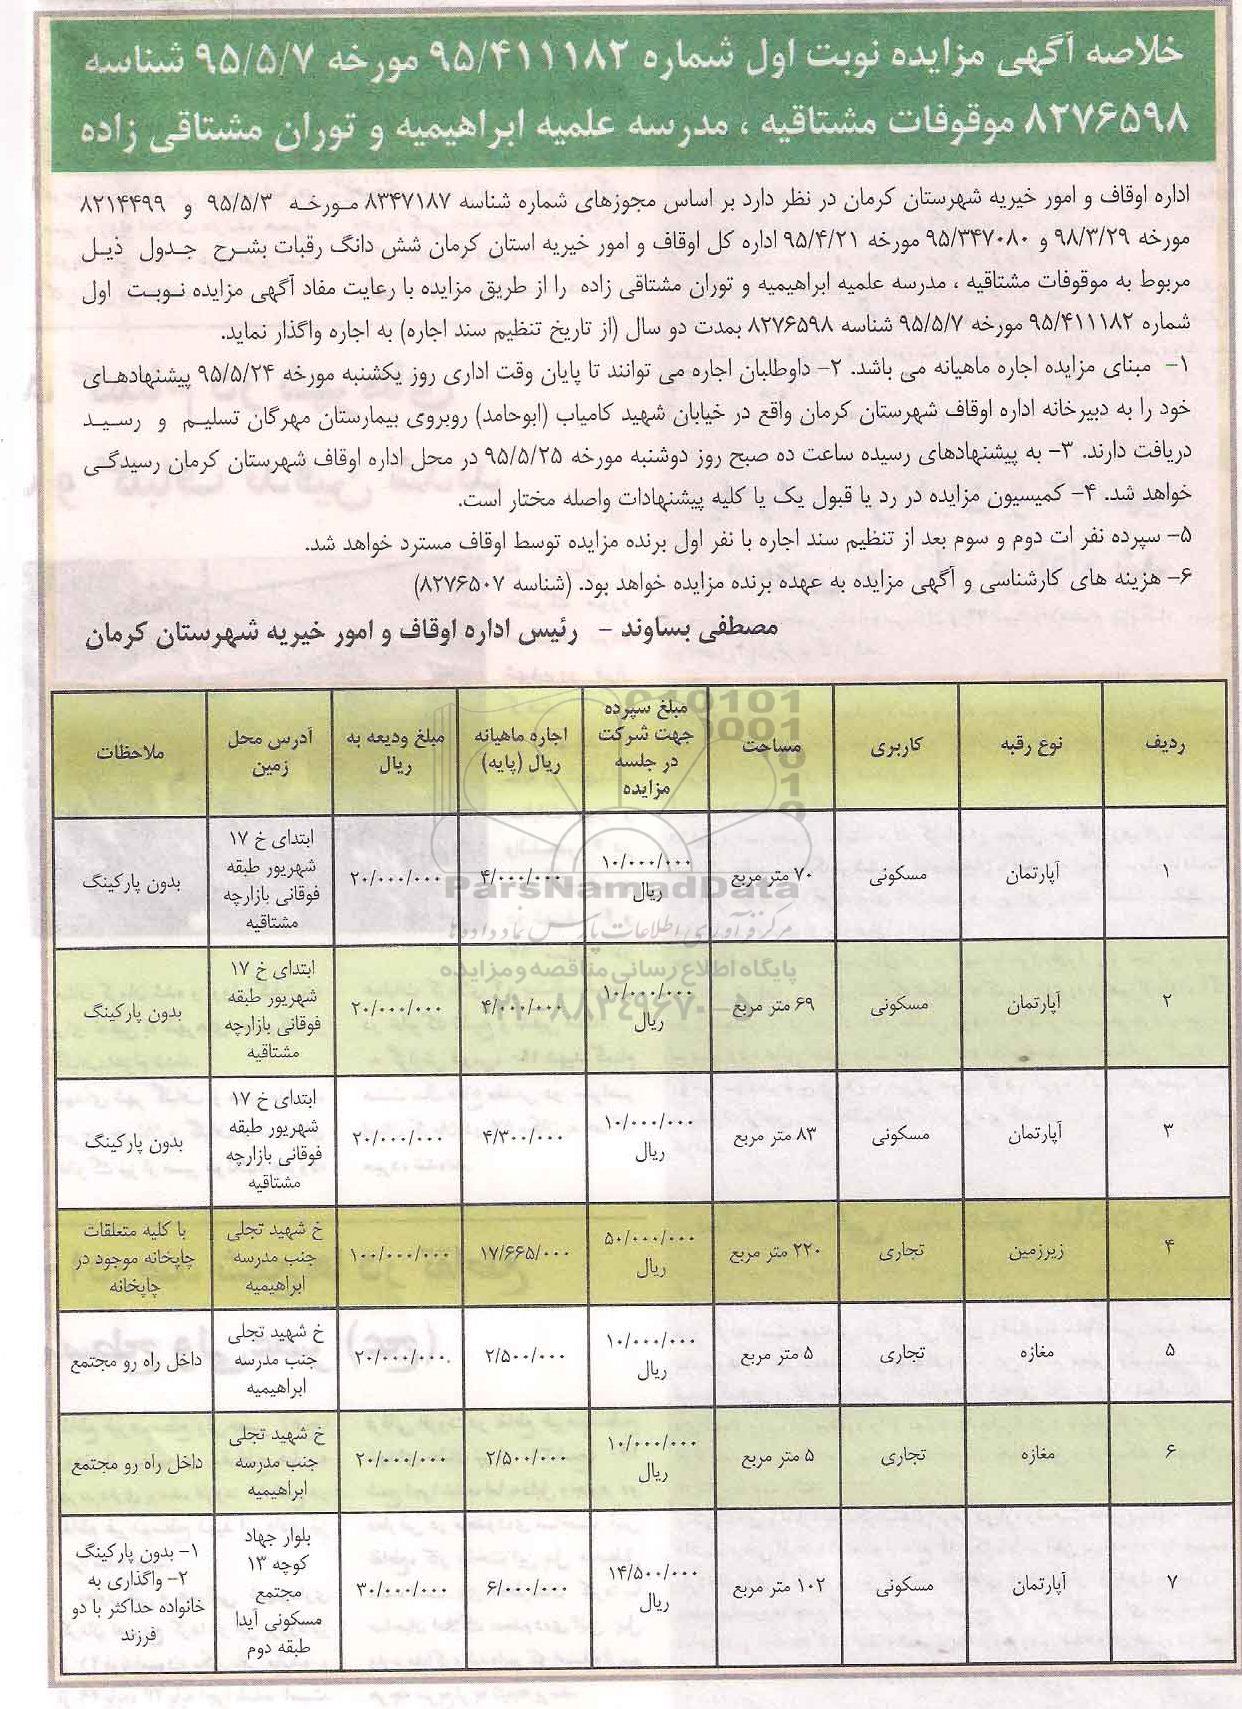 خلاصه آگهی مزایده نوبت اول شماره ۹۵/۴۱۱۱۸۲ مورخه ۹۵/۵/۷ شناسه
۸۲۷۶۵۹۸ موقوفات مشتاقیه ، مدرسه علمیه ابراهیمیه و توران مشتاقی زاده
اداره اوقاف و امور خیریه شهرستان کرمان در نظر دارد بر اساس مجوزهای شماره شناسه ۸۳۴۷۱۸۷ مورخه ۹۵/۵/۳ و ۸۲۱۴۴۹۹
مورخه ۹۸/۳/۲۹ و ۹۵/۳۴۷۰۸۰ مورخه ۹۵/۴/۲۱ اداره کل اوقاف و امور خیریه استان کرمان شش دانگ رقبات بشرح جدول ذیل
مربوط به موقوفات مشتاقیه ، مدرسه علمیه ابراهیمیه و توران مشتاقی زاده را از طریق مزایده با رعایت مفاد آگهی مزایده نوبت اول
شماره ۹۵/۴۱۱۱۸۲ مورخه ۹۵/۵/۷ شناسه ۸۲۷۶۵۹۸ بمدت دو سال (از تاریخ تنظیم سند اجاره) به اجاره واگذار نماید.
۱- مبنای مزایده اجاره ماهیانه می باشد. ۲- داوطلبان اجاره می توانند تا پایان وقت اداری روز یکشنبه مورخه ۹۵/۵/۲۴ پیشنهادهای
خود را به دبیرخانه اداره اوقاف شهرستان کرمان واقع در خیابان شهید کامیاب (ابوحامد) روبروی بیمارستان مهرگان تسلیم و رسید
دریافت دارند. ۳- به پیشنهادهای رسیده ساعت ده صبح روز دوشنبه مورخه ۹۵/۵/۲۵ در محل اداره اوقاف شهرستان کرمان رسیدگی
خواهد شد. ۴- کمیسیون مزایده در رد یا قبول یک یا کلیه پیشنهادات واصله مختار است.
۵- سپرده نفر ات دوم و سوم بعد از تنظیم سند اجاره با نفر اول برنده مزایده توسط اوقاف مسترد خواهد شد.
۶- هزینه های کارشناسی و آگهی مزایده به عهده برنده مزایده خواهد بود. (شناسه ۸۲۷۶۵۰۷)
مصطفی بساوند - رئیس اداره اوقاف و امور خیریه شهرستان کرمان
ردیف نوع رقبه کاربری مساحت مبلغ سپرده جهت شرکت در جلسه مزایده اجاره ماهیانه ریال (پایه) مبلغ ودیعه به ریال آدرس محل زمین ملاحظات
۱ آپارتمان مسکونی ۷۰ متر مربع ۱۰/۰۰۰/۰۰۰ ریال ۴/۰۰۰/۰۰۰ ۲۰/۰۰۰/۰۰۰ ابتدای خ ۱۷ شهریور طبقه فوقانی بازارچه مشتاقیه بدون پارکینگ
۲ آپارتمان مسکونی ۶۹ متر مربع ۱۰/۰۰۰/۰۰۰ ریال ۴/۰۰۰/۰۰۰ ۲۰/۰۰۰/۰۰۰ ابتدای خ ۱۷ شهریور طبقه فوقانی بازارچه مشتاقیه بدون پارکینگ
۳ آپارتمان مسکونی ۸۳ متر مربع ۱۰/۰۰۰/۰۰۰ ریال ۴/۳۰۰/۰۰۰ ۲۰/۰۰۰/۰۰۰ ابتدای خ ۱۷ شهریور طبقه فوقانی بازارچه مشتاقیه بدون پارکینگ
۴ زیرزمین تجاری ۲۲۰ متر مربع ۵۰/۰۰۰/۰۰۰ ریال ۱۷/۶۶۵/۰۰۰ ۱۰۰/۰۰۰/۰۰۰ خ شهید تجلی جنب مدرسه ابراهیمیه با کلیه متعلقات چاپخانه موجود در چاپخانه
۵ مغازه تجاری ۵ متر مربع ۱۰/۰۰۰/۰۰۰ ریال ۲/۵۰۰/۰۰۰ ۲۰/۰۰۰/۰۰۰ خ شهید تجلی جنب مدرسه ابراهیمیه داخل راه رو مجتمع
۶ مغازه تجاری ۵ متر مربع ۱۰/۰۰۰/۰۰۰ ریال ۲/۵۰۰/۰۰۰ ۲۰/۰۰۰/۰۰۰ خ شهید تجلی جنب مدرسه ابراهیمیه داخل راه رو مجتمع
۷ آپارتمان مسکونی ۱۰۲ متر مربع ۱۴/۵۰۰/۰۰۰ ریال ۶/۰۰۰/۰۰۰ ۳۰/۰۰۰/۰۰۰ بلوار جهاد کوچه ۱۳ مجتمع مسکونی آیدا طبقه دوم ۱- بدون پارکینگ ۲- واگذاری به خانواده حداکثر با دو فرزند
ParsNamadData
مرکز فرآوری اطلاعات پارس نماد داده ها
پایگاه اطلاع رسانی مناقصه و مزایده